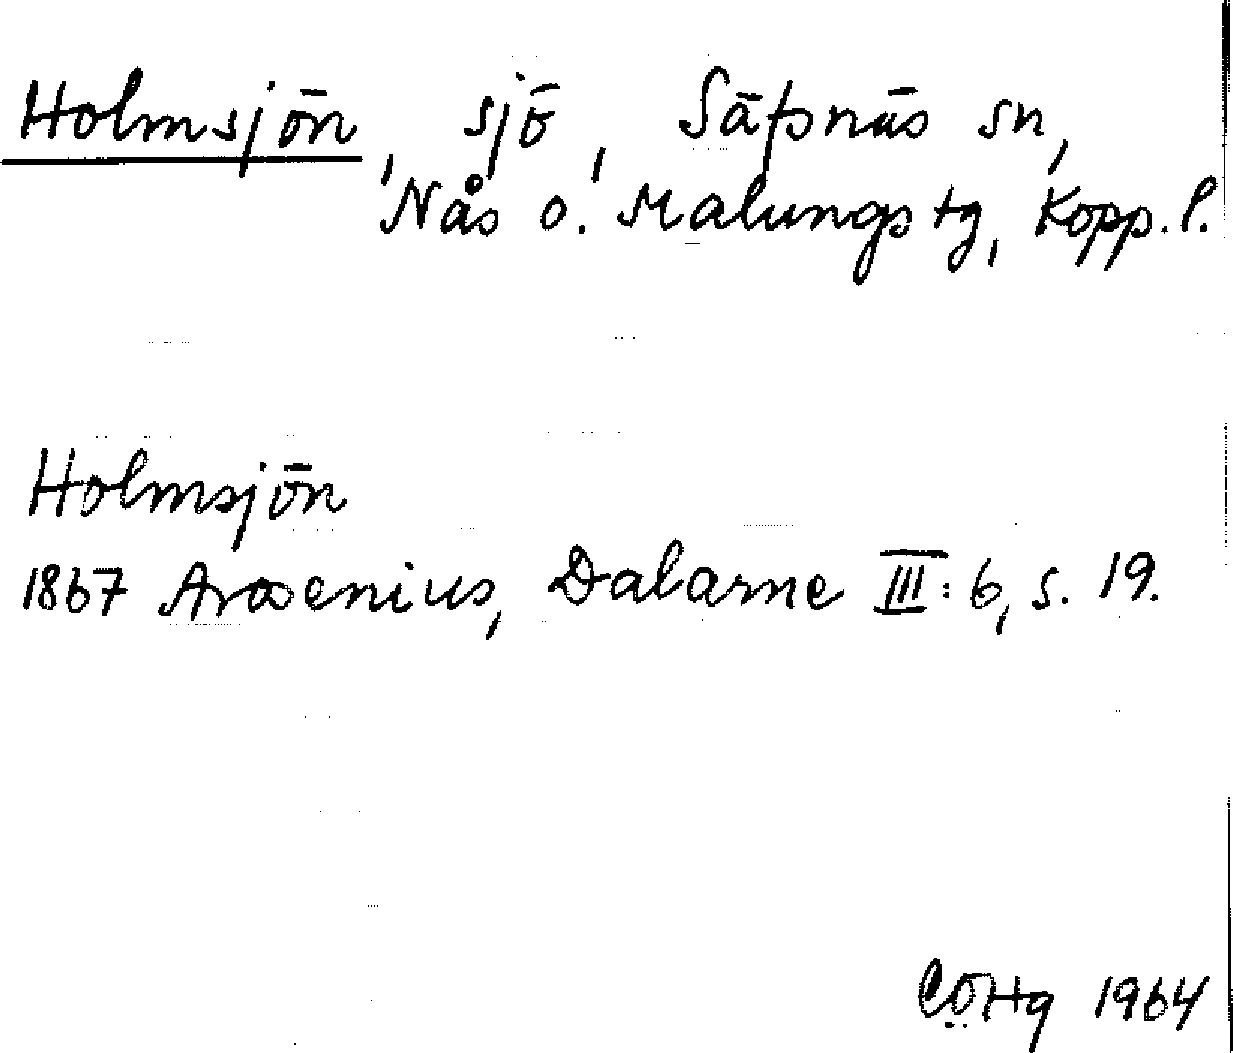 Holmsjön, sjö, Säfsnäs sn,
Nås o. Malungs tg, Kopp. l.
Holmsjön
1867 Arosenius, Dalarne III: 6, s. 19.
CÖHg 1964